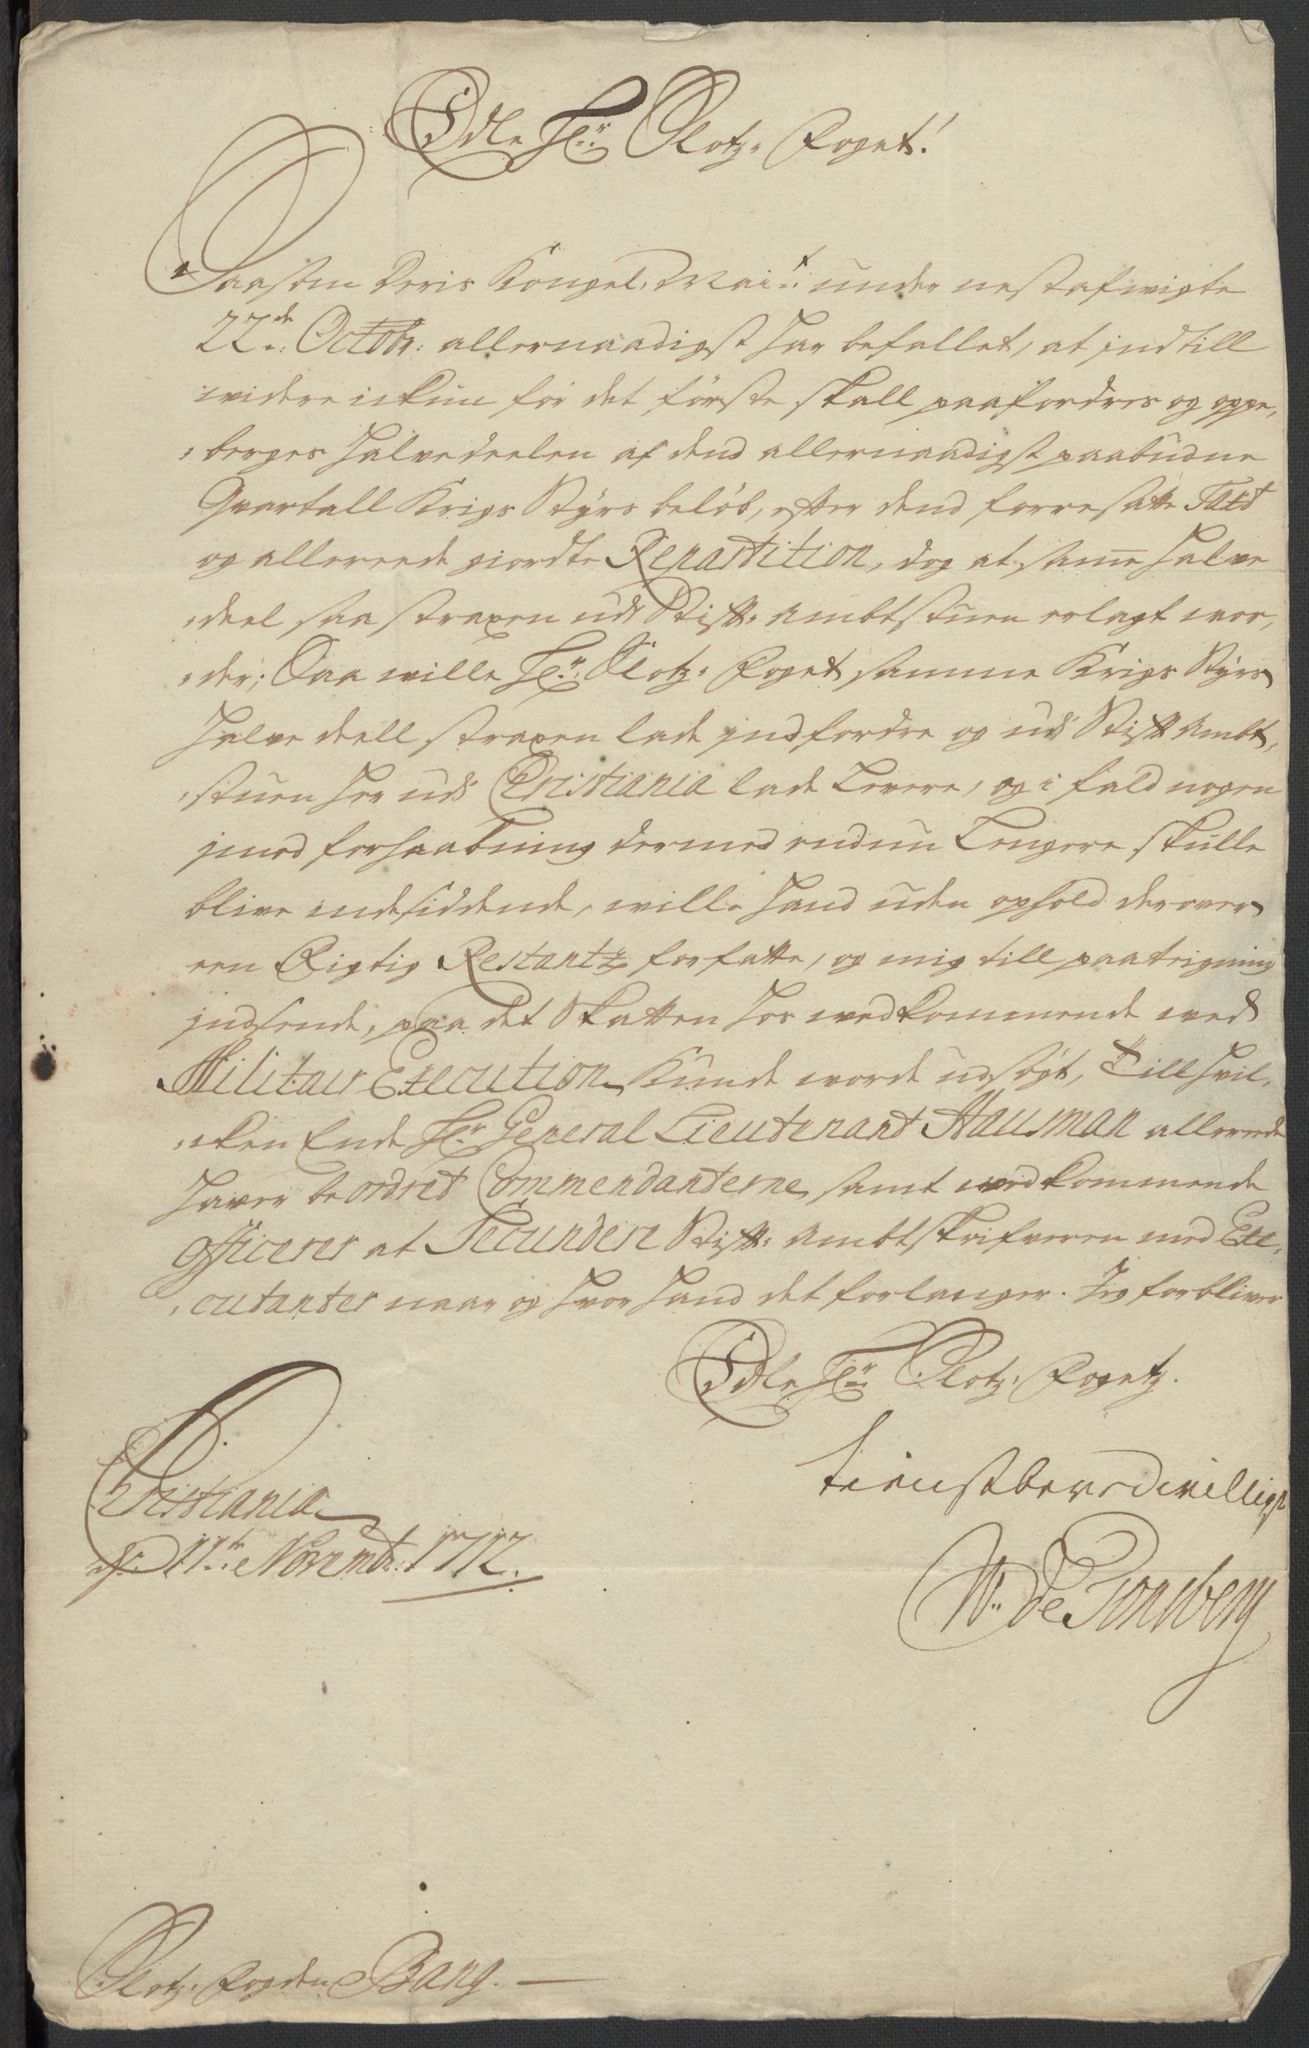 Edle Hr: Slotz- Foget!
Saasom Deris Kongel. Mait: under nestafwigte
22de: Octobr: allernaadigst har befallet, at indtill
widere ickun for det første skall paafordres og oppe-
berges halvedeelen af dend allernaadigst paabudne
Qvartall Krigs Styrs beløb, efter dend forresatte Taxt
og allereede giordte Repartition, dog at samme halve
deel saa straxen udi Stift- Ambtstuen erlagt wor-
der; Saa wille Hr: Slotz- Foget samme Krigs Styrs
halve deell straxen lade indfordre og udi Stift Ambt-
stuen her udi Christiania lade Levere, og i fald nogen
imod forhaabning dermed endnu Lengere skulle
blive indesiddende, wille hand uden ophold derover
een Rigtig Restantz forfatte, og mig till paateigning
indsende, paa det Skatten hos wedkommende wed
Militair Execution kunde worde udsøgt, Till hvil-
cken Ende Hr: General Lieutenant Hausman allereede
haver beordret Commendanterne, samt wedkommende
Officerer at Secundere Stift- Ambtskrifveren med Exe-
cutanter naar og hvor hand det forlanger. Jeg forbliver
Edle Hr: Slotz- Fogetz.
tienstberedvilligst
W: de Tonsberg
Christiania
d: 11te Novembr: 1712.
Slotz- Fogden Bang.